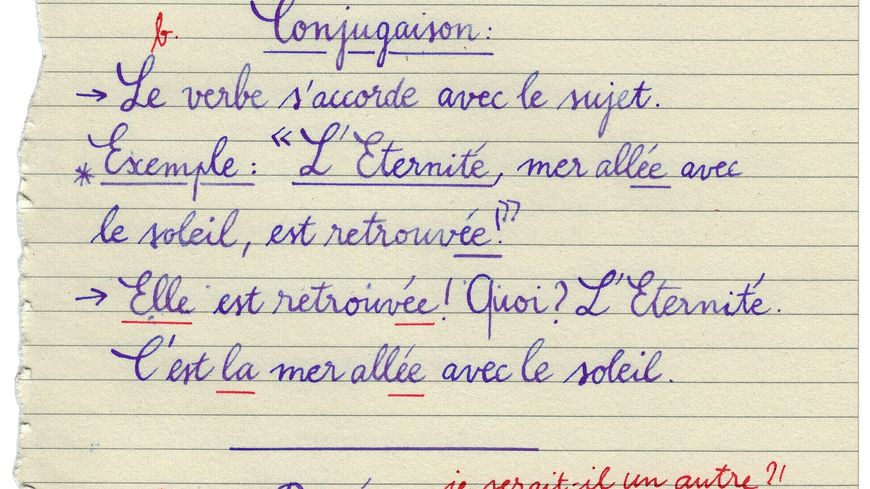 b. Conjugaison :
→ Le verbe s'accorde avec le sujet.
* Exemple : "L'Eternité, mer allée avec
le soleil, est retrouvée !"
→ Elle est retrouvée ! Quoi ? L'Eternité.
C'est la mer allée avec le soleil.
je serait-il un autre ?!